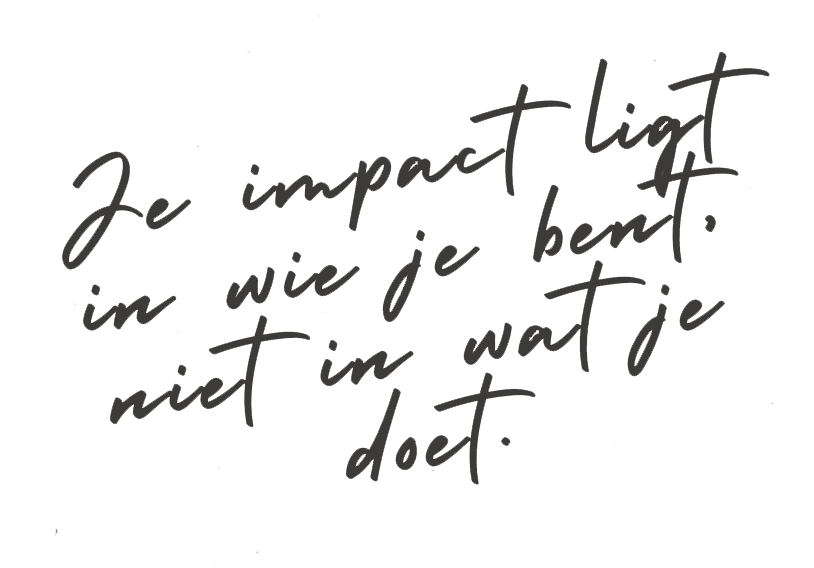 Je impact ligt
in wie je bent,
niet in wat je
doet.